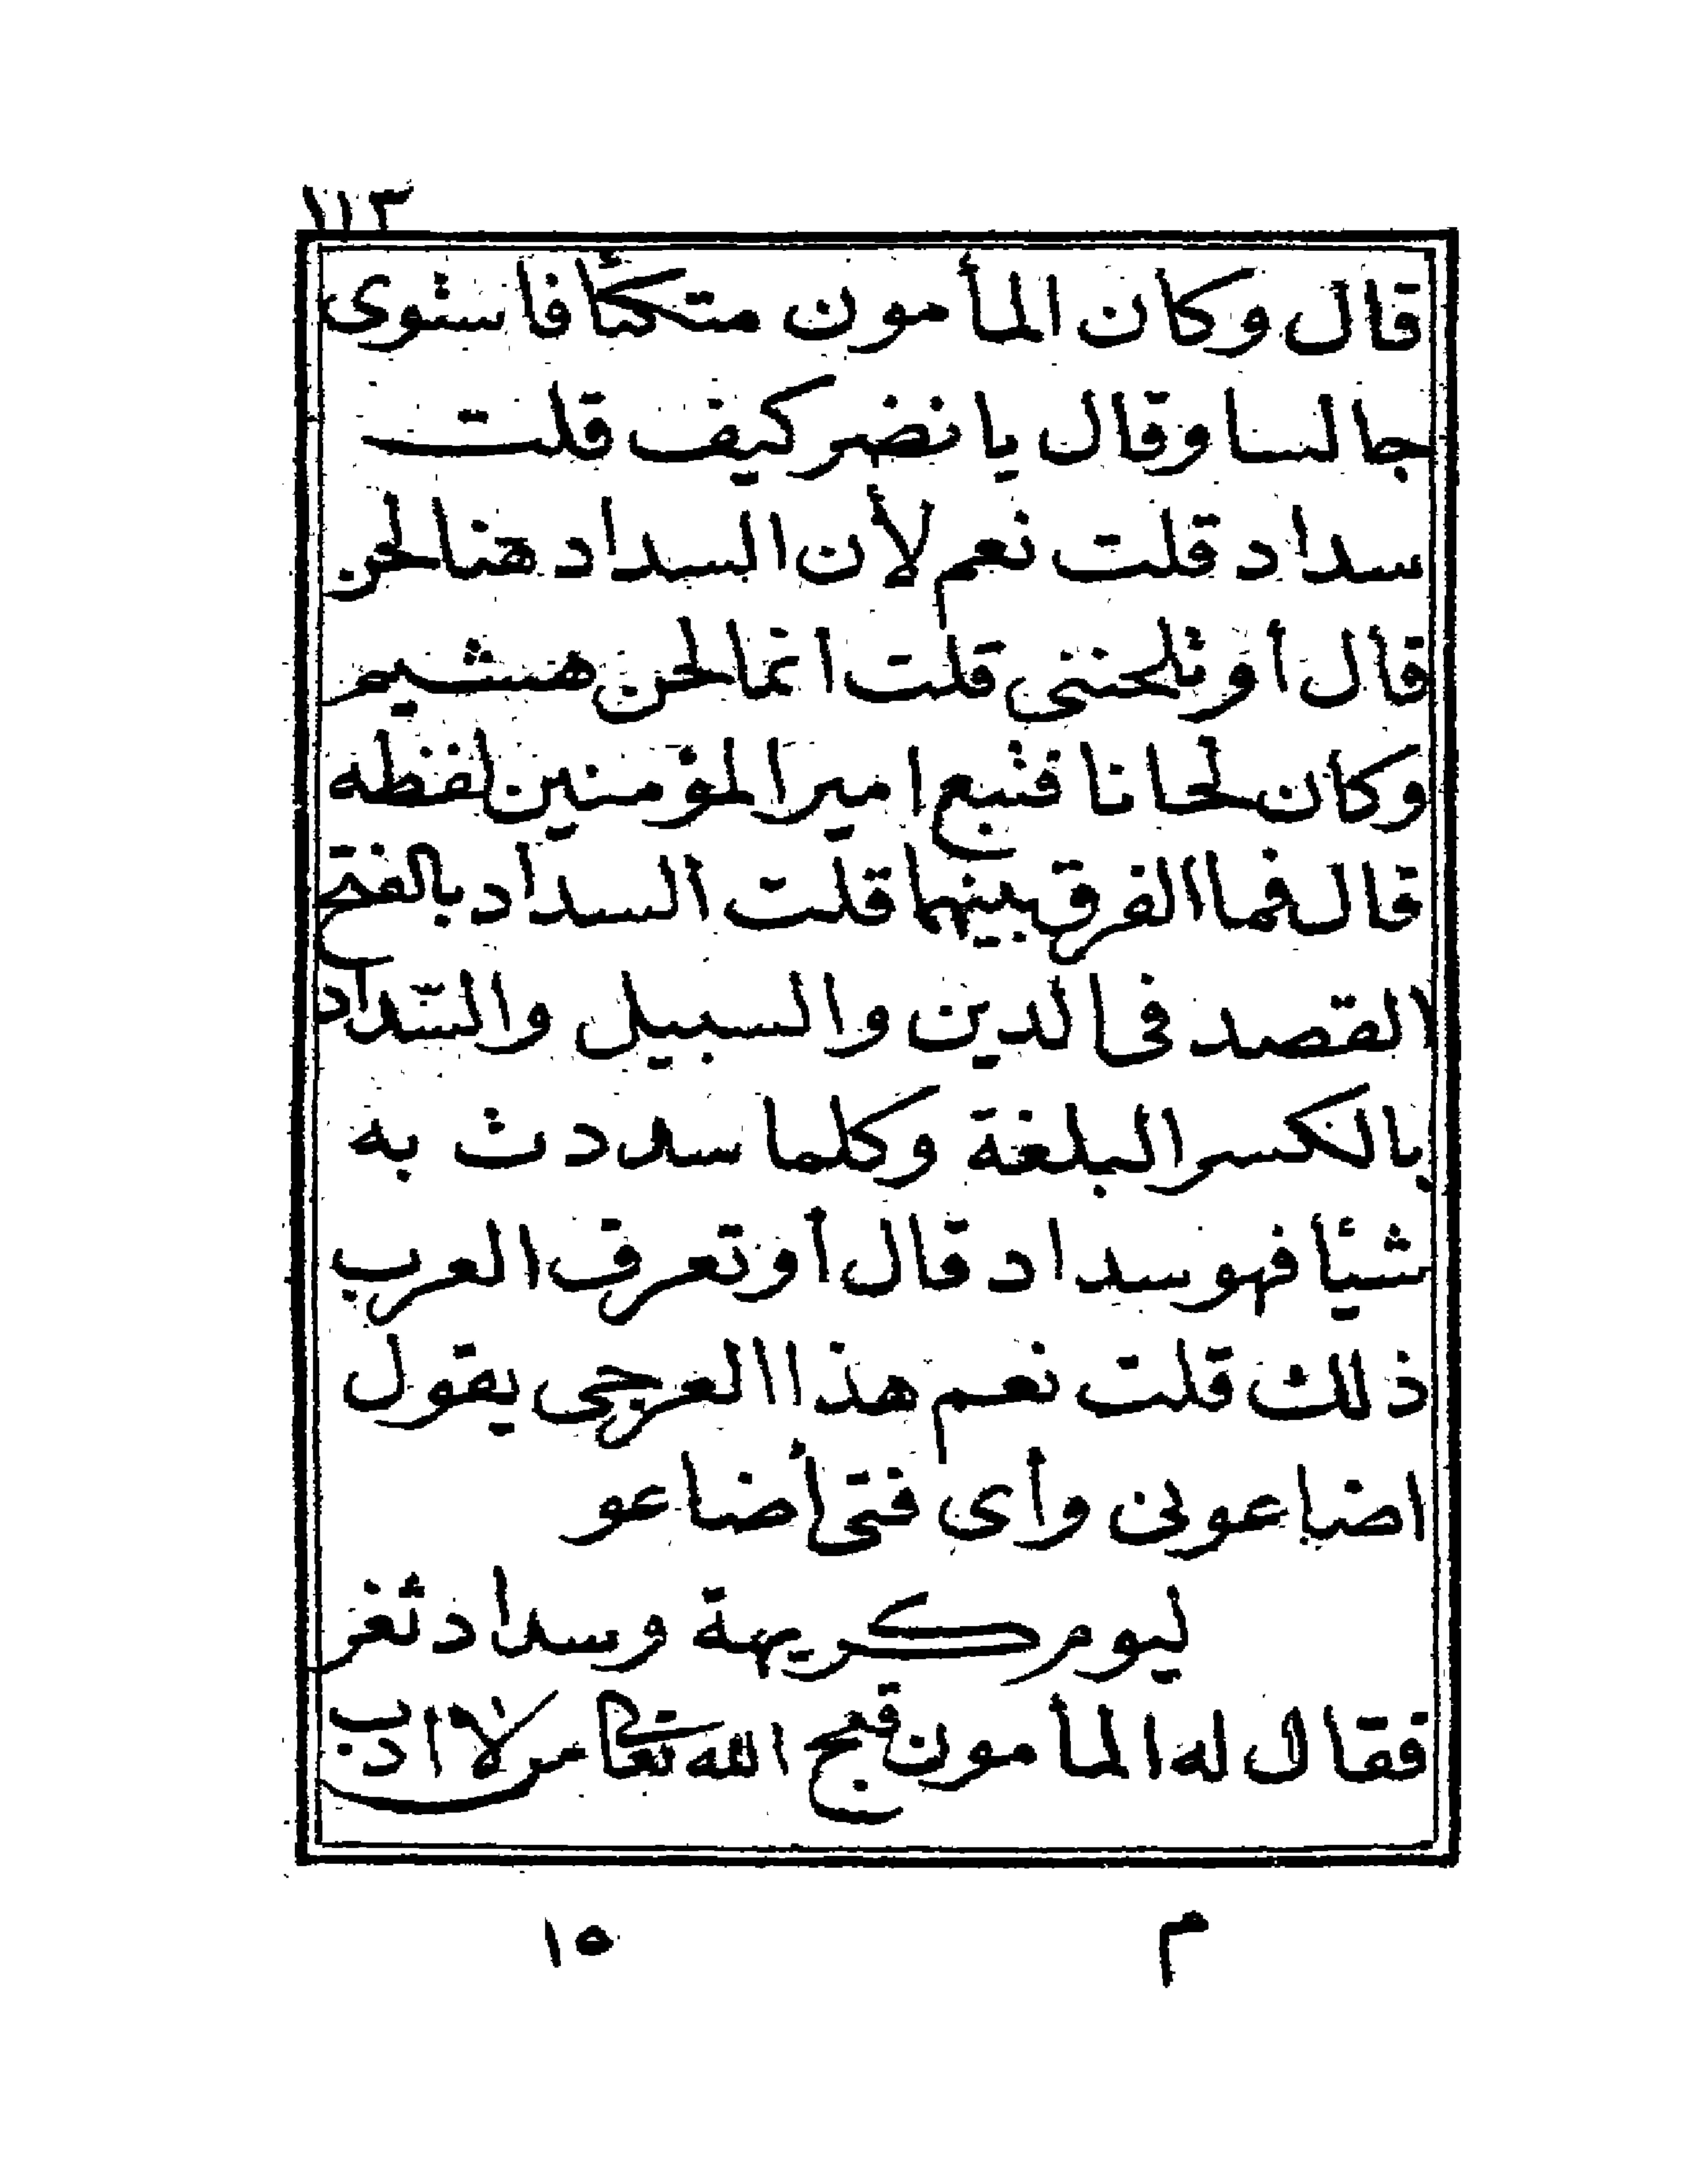 ١١٣
قال وكان المأمون متكئا فاستوى
جالسا وقال يا نضر كيف قلت
سداد قلت نعم لأن السداد هنا لحن
قال أو تلحننى قلت انما لحن هشيم
وكان لحانا فتبع امير المؤمنين لفظه
قال فما الفرق بينهما قلت السداد بالفتح
القصد فى الدين والسبيل والسّداد
بالكسر البلغة وكلما سددت به
شيئا فهو سداد قال أو تعرف العرب
ذلك قلت نعم هذا العرجى يقول
اضاعونى وأى فتى أضاعو
ليوم كريهة وسداد ثغر
فقال له المأمون قبح الله تعالى من لا ادب
م ١٥